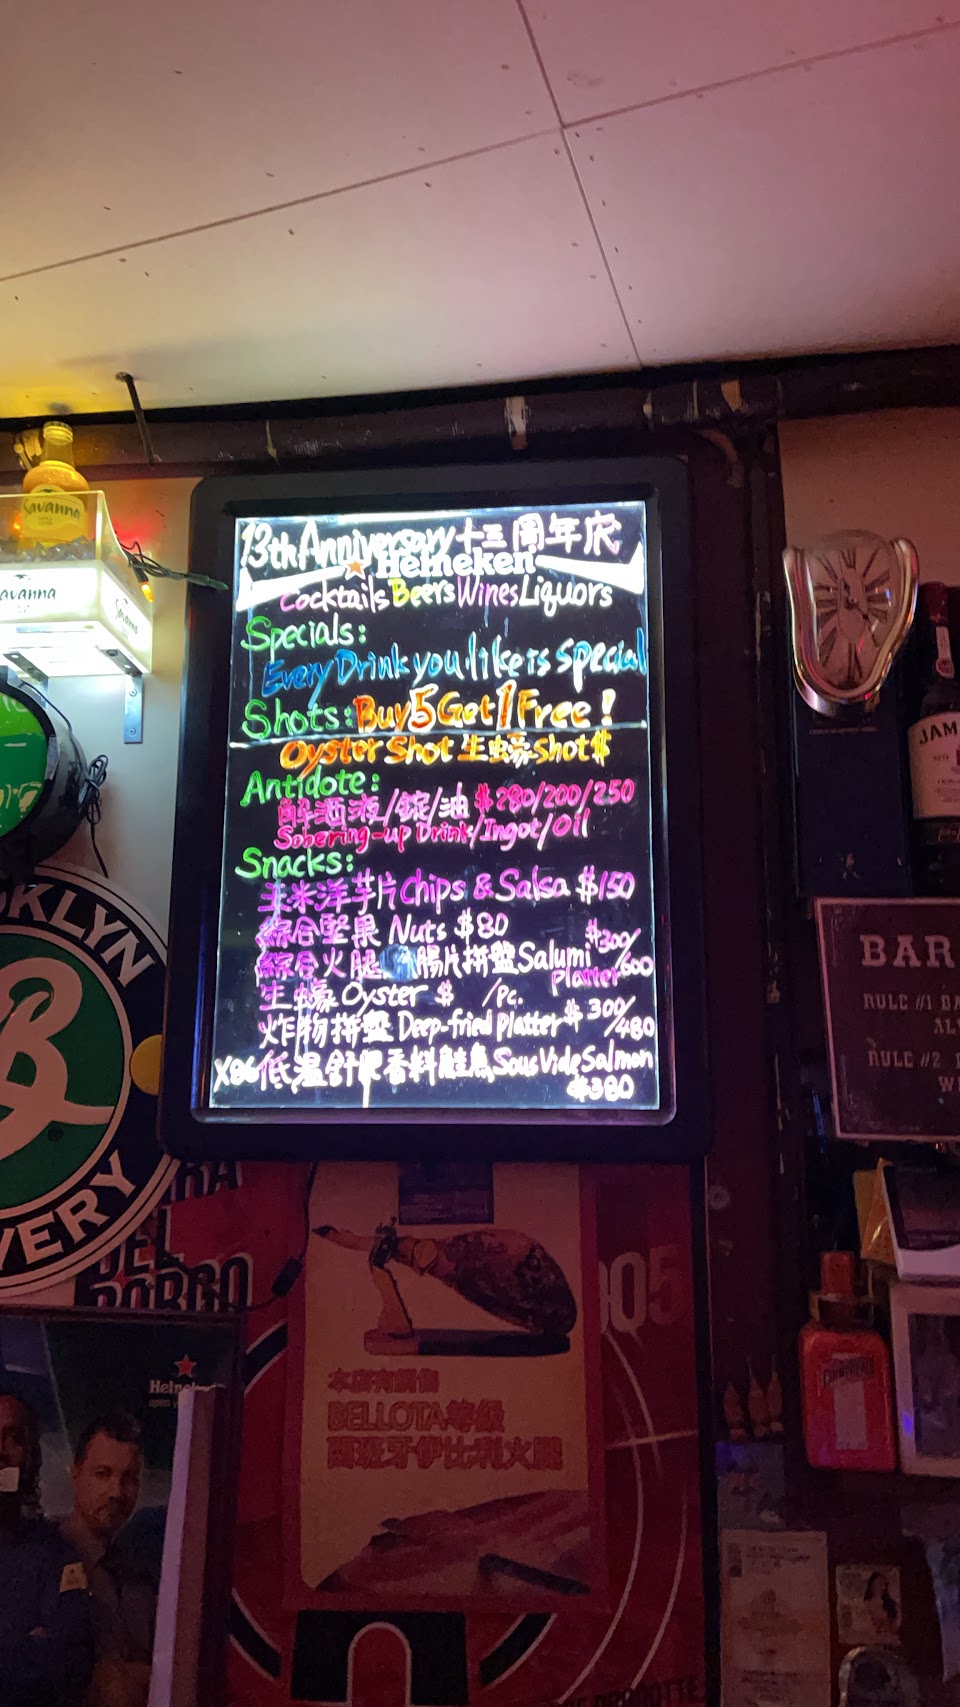 13th Anniversary 十三周年慶
Heineken
Cocktails Beers Wines Liquors
Specials:
Every Drink you like is special
Shots: Buy 5 Get 1 Free!
Oyster Shot 生蠔shot$
Antidote:
解酒液/錠/油 $280/200/250
Sobering-up Drink/Ingot/Oil
Snacks:
玉米洋芋片 Chips & Salsa $150
綜合堅果 Nuts $80
綜合火腿 腸片拼盤 Salumi Platter $300/600
生蠔 Oyster $ /pc.
炸物拼盤 Deep-fried platter $300/480
X86 低溫舒肥香料鮭魚 Sous Vide Salmon
$380
Savanna
avanna
OOKLYN
B
WERY
®
BAR
RULE #1 BA
AL
RULE #2
W
JAM
005
本店有販售
BELLOTA等級
西班牙伊比利火腿
Heine
open y